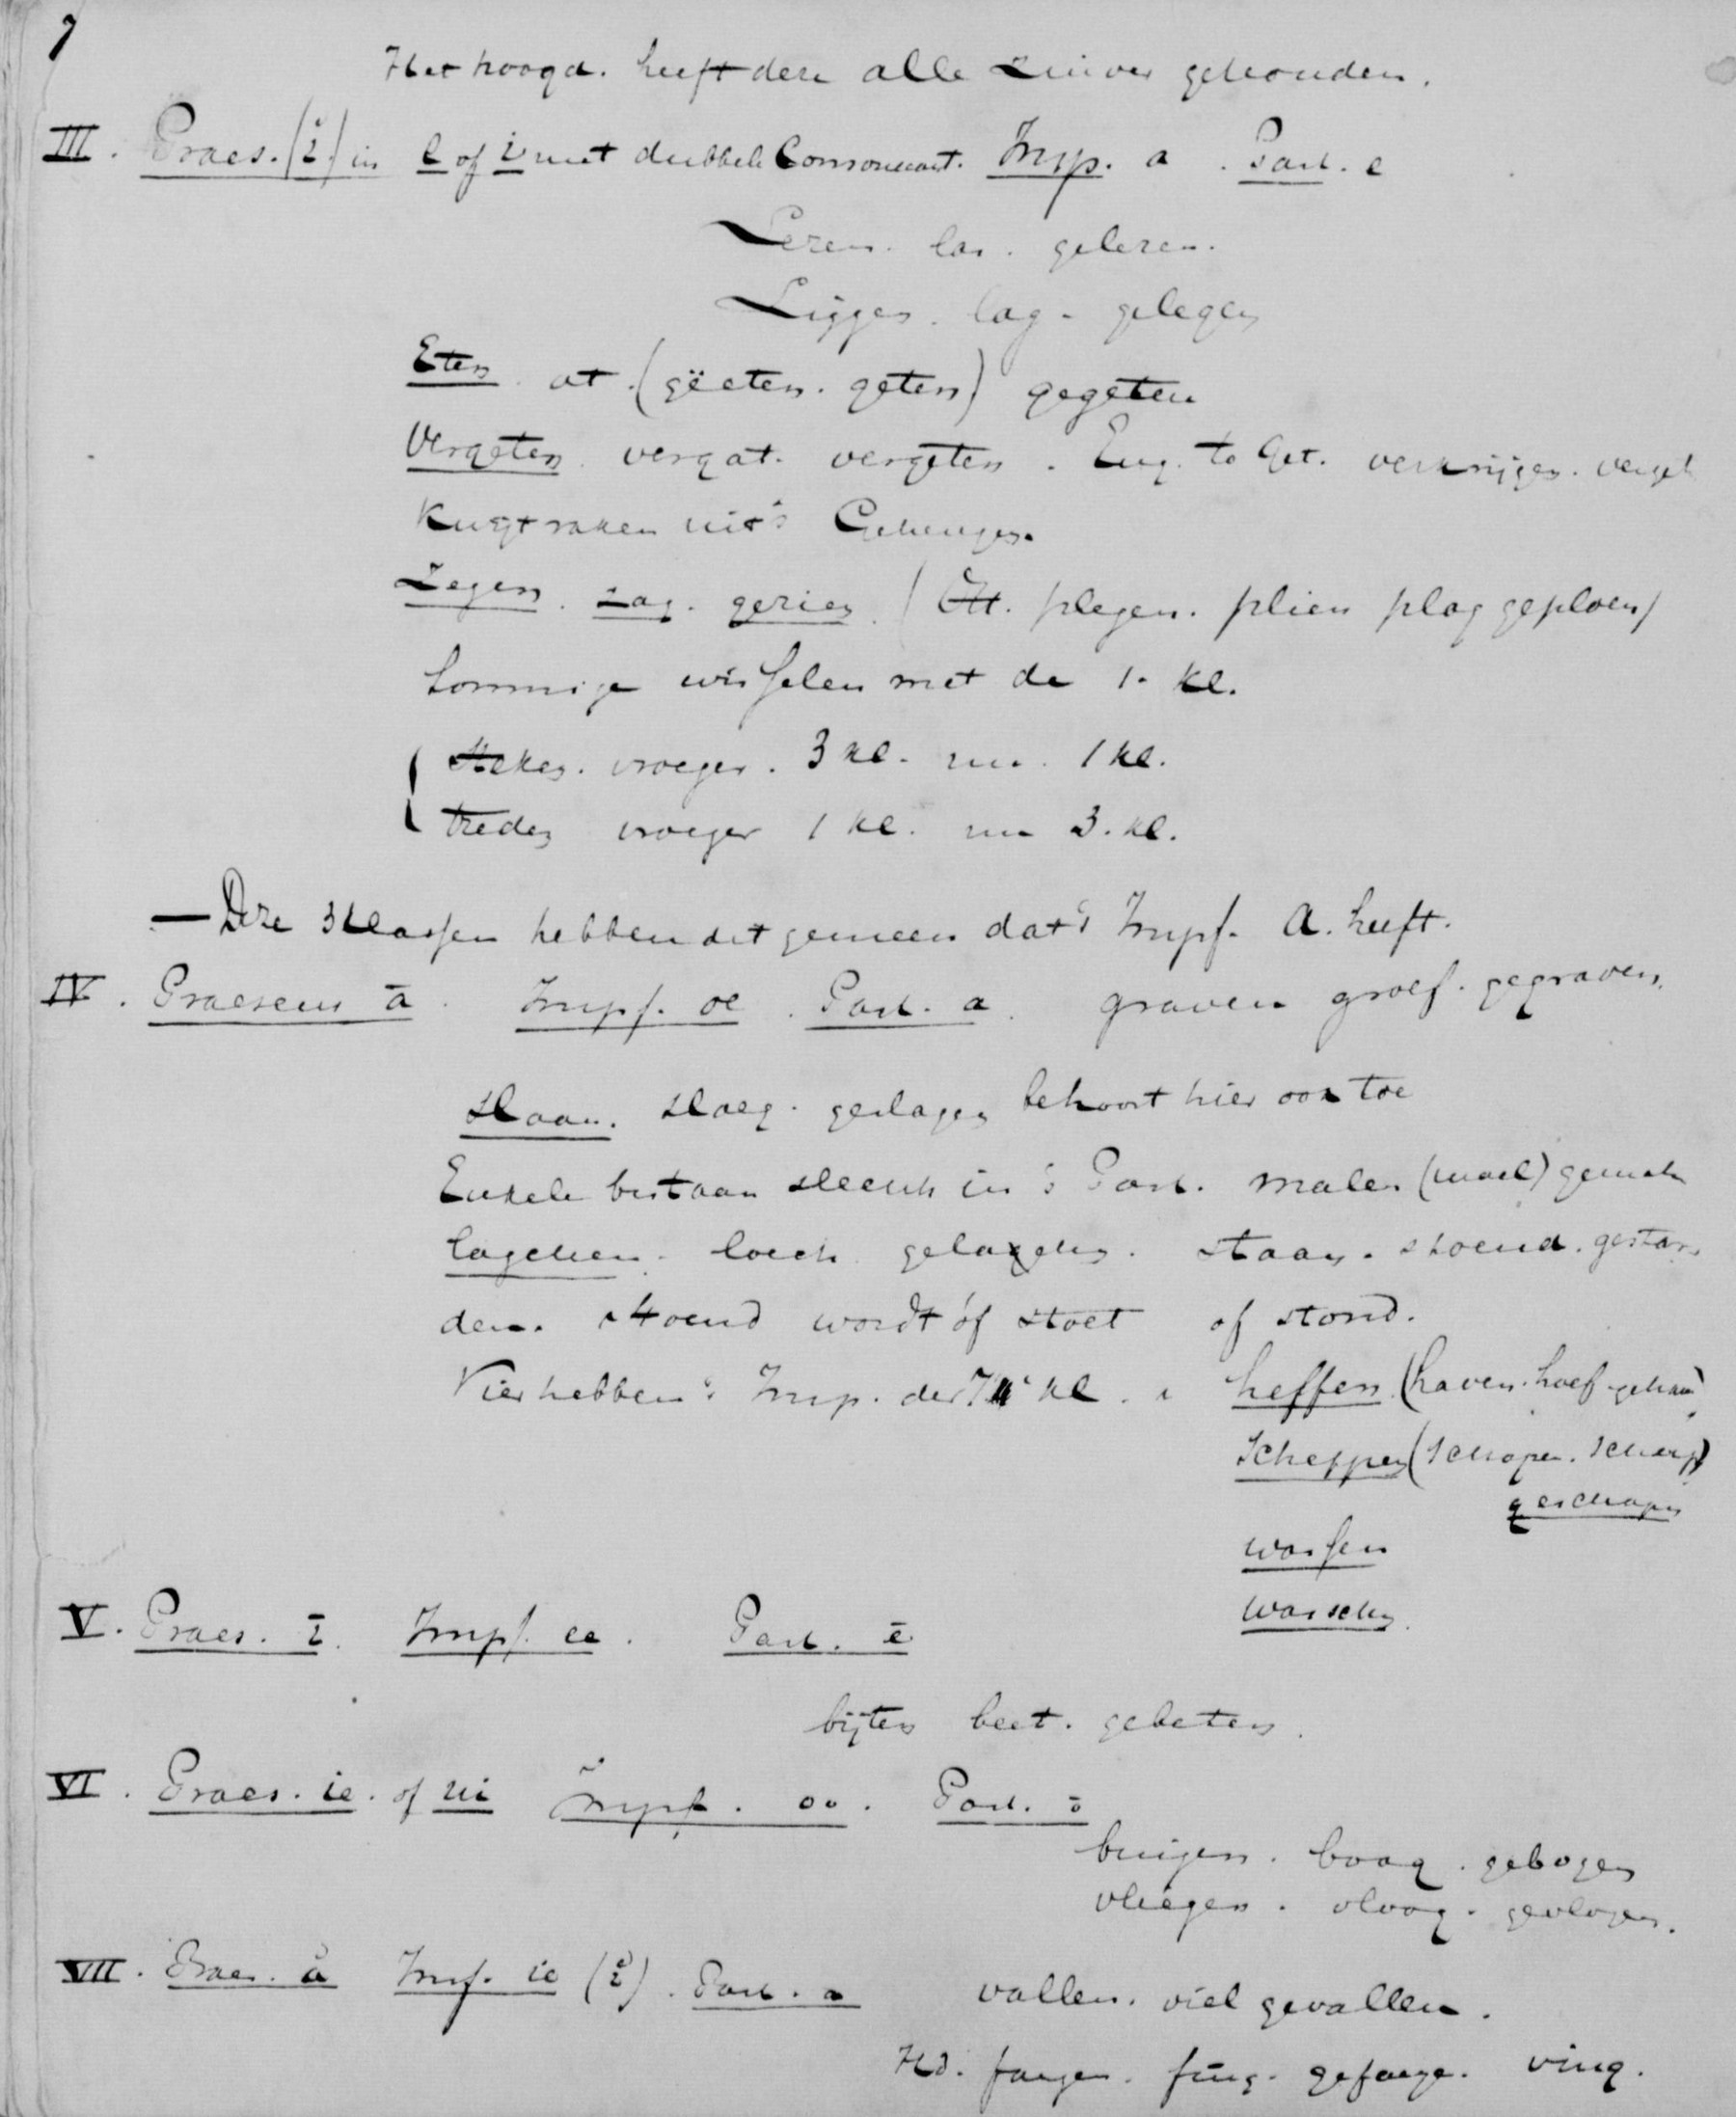 7
Het hoogd. heeft deze alle zuiver gehouden.
III. Praes. (ĭ) in e of i met dubbele Consonant. Imp. a. Part. e
Lezen. las. gelezen.
Liggen. lag. gelegen
Eten. at. (gëeten. geten) gegeten
Vergeten. vergat. vergeten. Eng. to Get. verkrijgen.
Kwijtraken uit 's Geheugen.
Zegen. zag. gezien. (Ott. plegen. plien plag geploen)
Sommige wisselen met de 1. kl.
Steken. vroeger. 3 kl. nu. 1 kl.
treden vroeger 1 kl. nu 3. kl.
— Deze 3 klassen hebben dit gemeen dat 's Impf. A. heeft.
IV. Praesens ā. Impf. oe. Part. a. graven groef. gegraven.
slaan. sloeg. geslagen behoort hier ook toe
Enkele bestaan slechts in 's Part. malen (moel) gemalen
lagchen. loech gelagchen. staan. stoend. gestan
den. stoend wordt óf stoet of stond.
Vier hebben 's Imp. der 7e kl. : heffen (haven. hoef. gehaven)
Scheppen (schapen. schoep)
geschapen
wassen
wasschen.
V. Praes. ī. Impf. ee. Part. ē
bijten beet. gebeten.
VI. Praes. ie. of ui Impf. oo. Part. ō
buigen. boog. gebogen
vliegen. vloog. gevlogen.
VII. Praes. ă Imf. ie (ĭ). Part. a vallen. viel gevallen.
Hd. fangen. fing. gefange. ving.